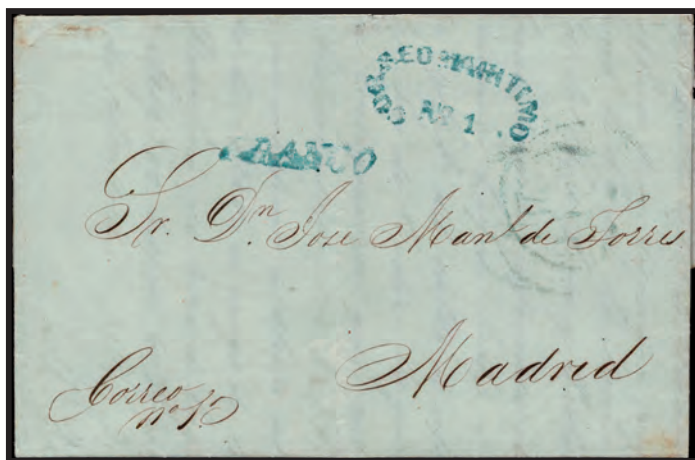 CORREO MARITIMO
Nº 1.
FRANCO
Sr. Dn Jose Manl de Torres
Madrid
Correo
nº 1º